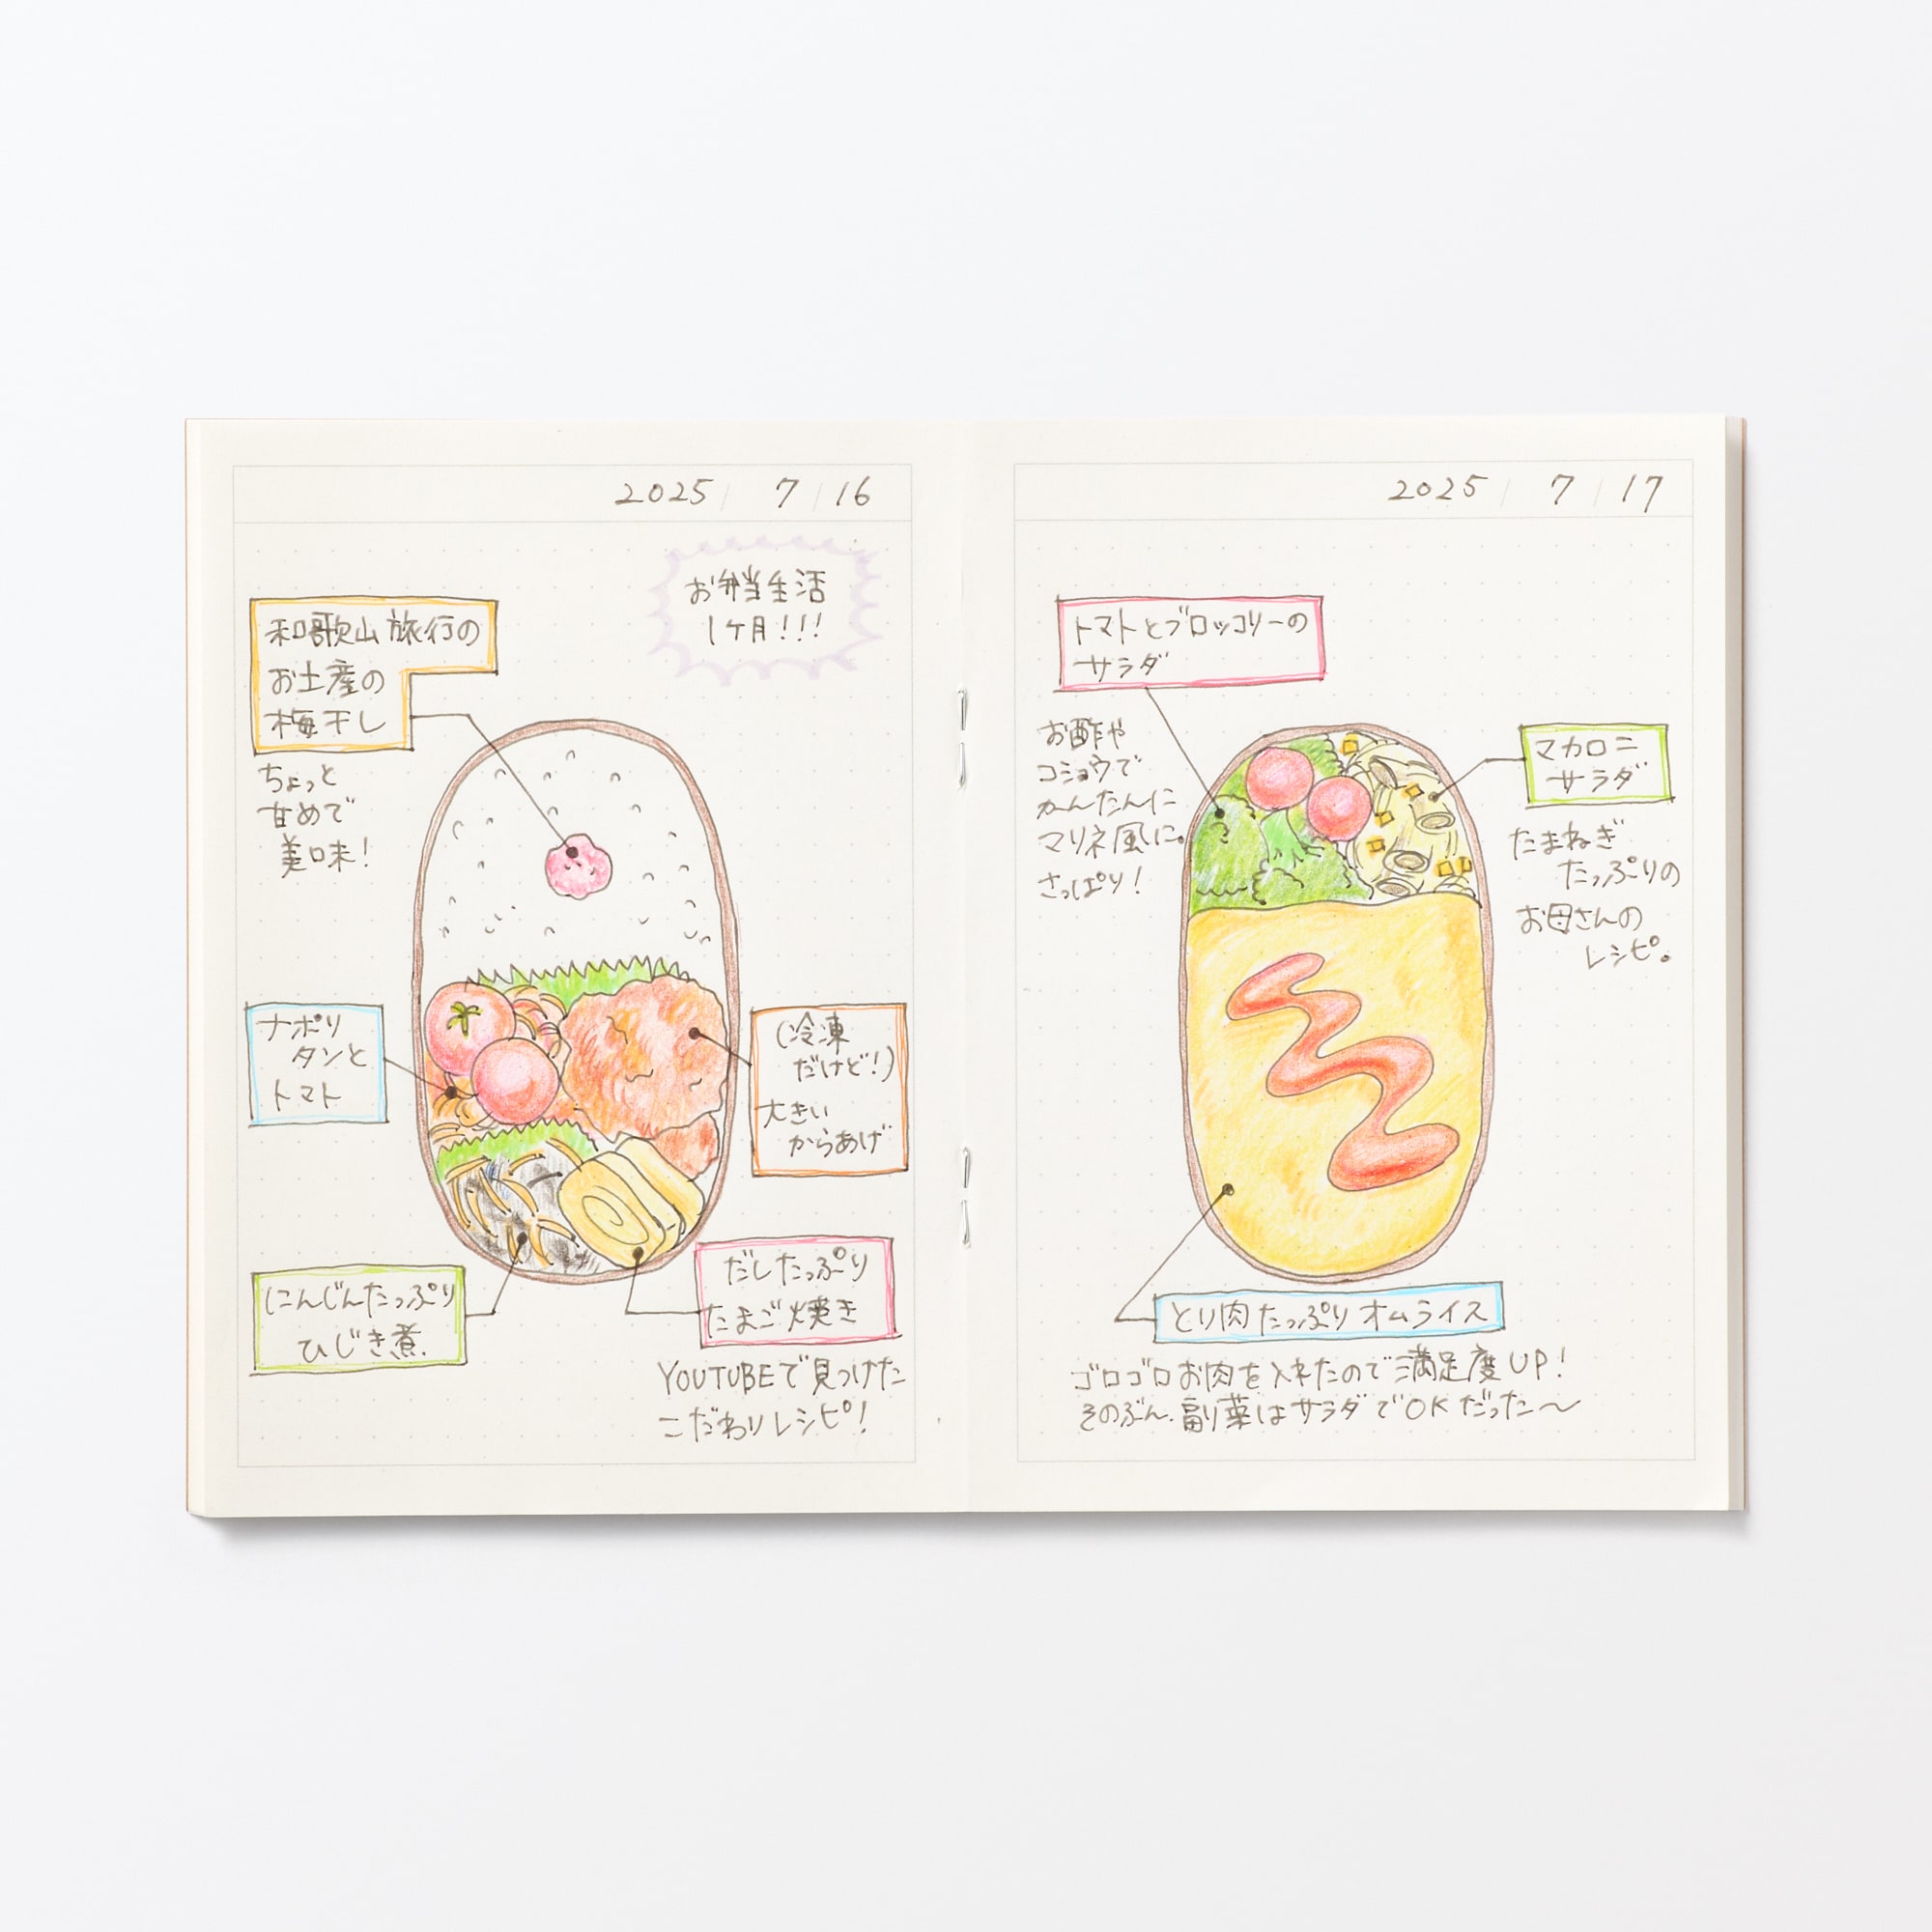 2025 / 7 / 16
お弁当生活
1ヶ月!!!
和歌山旅行の
お土産の
梅干し
ちょっと
甘めで
美味!
ナポリ
タンと
トマト
(冷凍
だけど!)
大きい
からあげ
にんじんたっぷり
ひじき煮.
だしたっぷり
たまご焼き
YOUTUBEで見つけた
こだわりレシピ!
2025 / 7 / 17
トマトとブロッコリーの
サラダ
お酢や
コショウで
かんたんに
マリネ風に。
さっぱり!
マカロニ
サラダ
たまねぎ
たっぷりの
お母さんの
レシピ。
とり肉たっぷりオムライス
ゴロゴロお肉を入れたので満足度UP!
そのぶん、副菜はサラダでOKだった〜